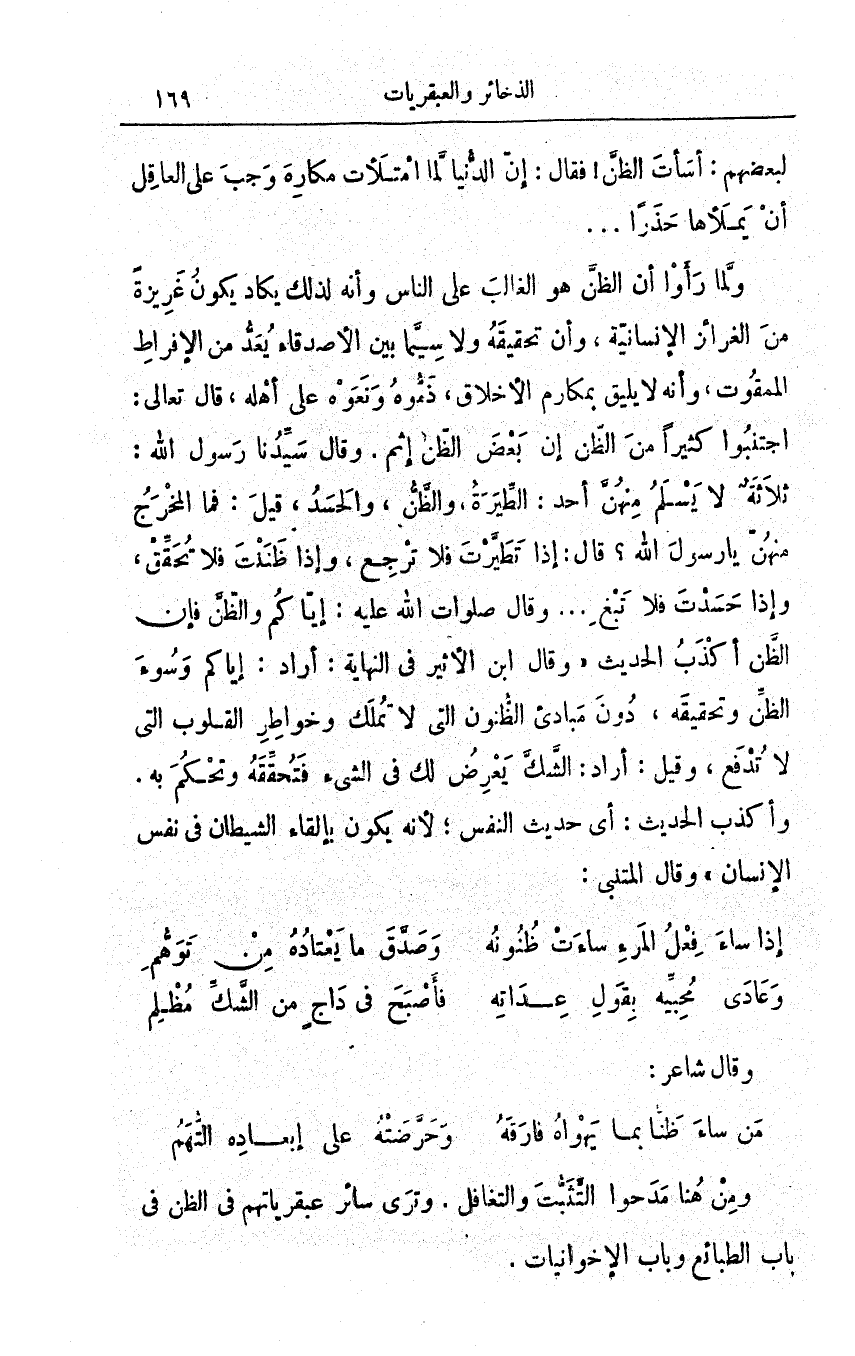 الذخائر والعبقريات ١٦٩
لبعضهم : أسَأتَ الظنَّ ! فقال : إنّ الدُّنيا لمَّا امْتـلَأت مكارِهَ وَجبَ على العاقِل
أنْ يَمـلَأها حَذَرًا ...
ولمَّا رَأَوْا أن الظنَّ هو الغالبَ على الناس وأنه لذلك يكاد يكونُ غَرِيزةً
منَ الغرائز الإنسانيّة ، وأن تحقيقَهُ ولا سِيَّما بين الأصدقاء يُعَدُّ من الإفراطِ
الممقُوت ، وأنه لا يليق بمكارم الأخلاق ، ذَمُّوهُ وَنَعَوْه على أهْله ، قال تعالى :
اجتنبُوا كثيراً منَ الظّن إن بَعْضَ الظّنّ إثم . وقال سَيِّدُنا رَسول الله :
ثلاَثَةٌ لا يَسْلَمُ مِنهُنَّ أحد : الطِّيَرَةُ ، والظَّنُّ ، والحَسَدُ ، قيلَ : فما المخْرَجُ
منهُنّ يارسولَ الله ؟ قال : إذا تَطَيَّرْتَ فلا ترْجِـع ، وإذا ظَنَنْتَ فلا تُحَقِّقْ ،
وإذا حَسَدْتَ فلا تَبْغِ ... وقال صلوات الله عليه : إيّاكُم والظّنَّ فإن
الظَّن أكْذَبُ الحديث « وقال ابن الأثير فى النهاية : أراد : إياكم وَسُوءَ
الظنِّ وتحقيقَه ، دُونَ مَبادئ الظُّنون التى لا تُملَك وخواطِرِ القـلوب التى
لا تُدْفَع ، وقيل : أراد : الشَّكَّ يَعْرِضُ لك فى الشىء فَتُحقِّقَهُ وتحْـكُمَ به .
وأكذب الحديث : أى حديث النفس ؛ لأنه يكون بإلقاء الشيطان فى نفس
الإنسان » وقال المتنبى :
إذا ساءَ فِعْلُ المَرءِ ساءَتْ ظُنُونُه وَصَدَّقَ ما يَعْتادُهُ مِنْ تَوَهُّمِ
وَعَادَى مُحِبِّيه بِقَولِ عِـــدَاتِه فأَصْبَحَ فى دَاجٍ من الشَّكِّ مُظْـلِم
وقال شاعر :
مَن ساءَ ظَنًّا بمـا يَهْواهُ فارَقَهُ وَحَرَّضَتْهُ على إبعـــادِه التُّهَمُ
ومِنْ هُنا مَدَحوا التَّثَبُّتَ والتغافل . وترَى سائر عبقرياتهم فى الظن فى
باب الطبائع وباب الإخوانيات .